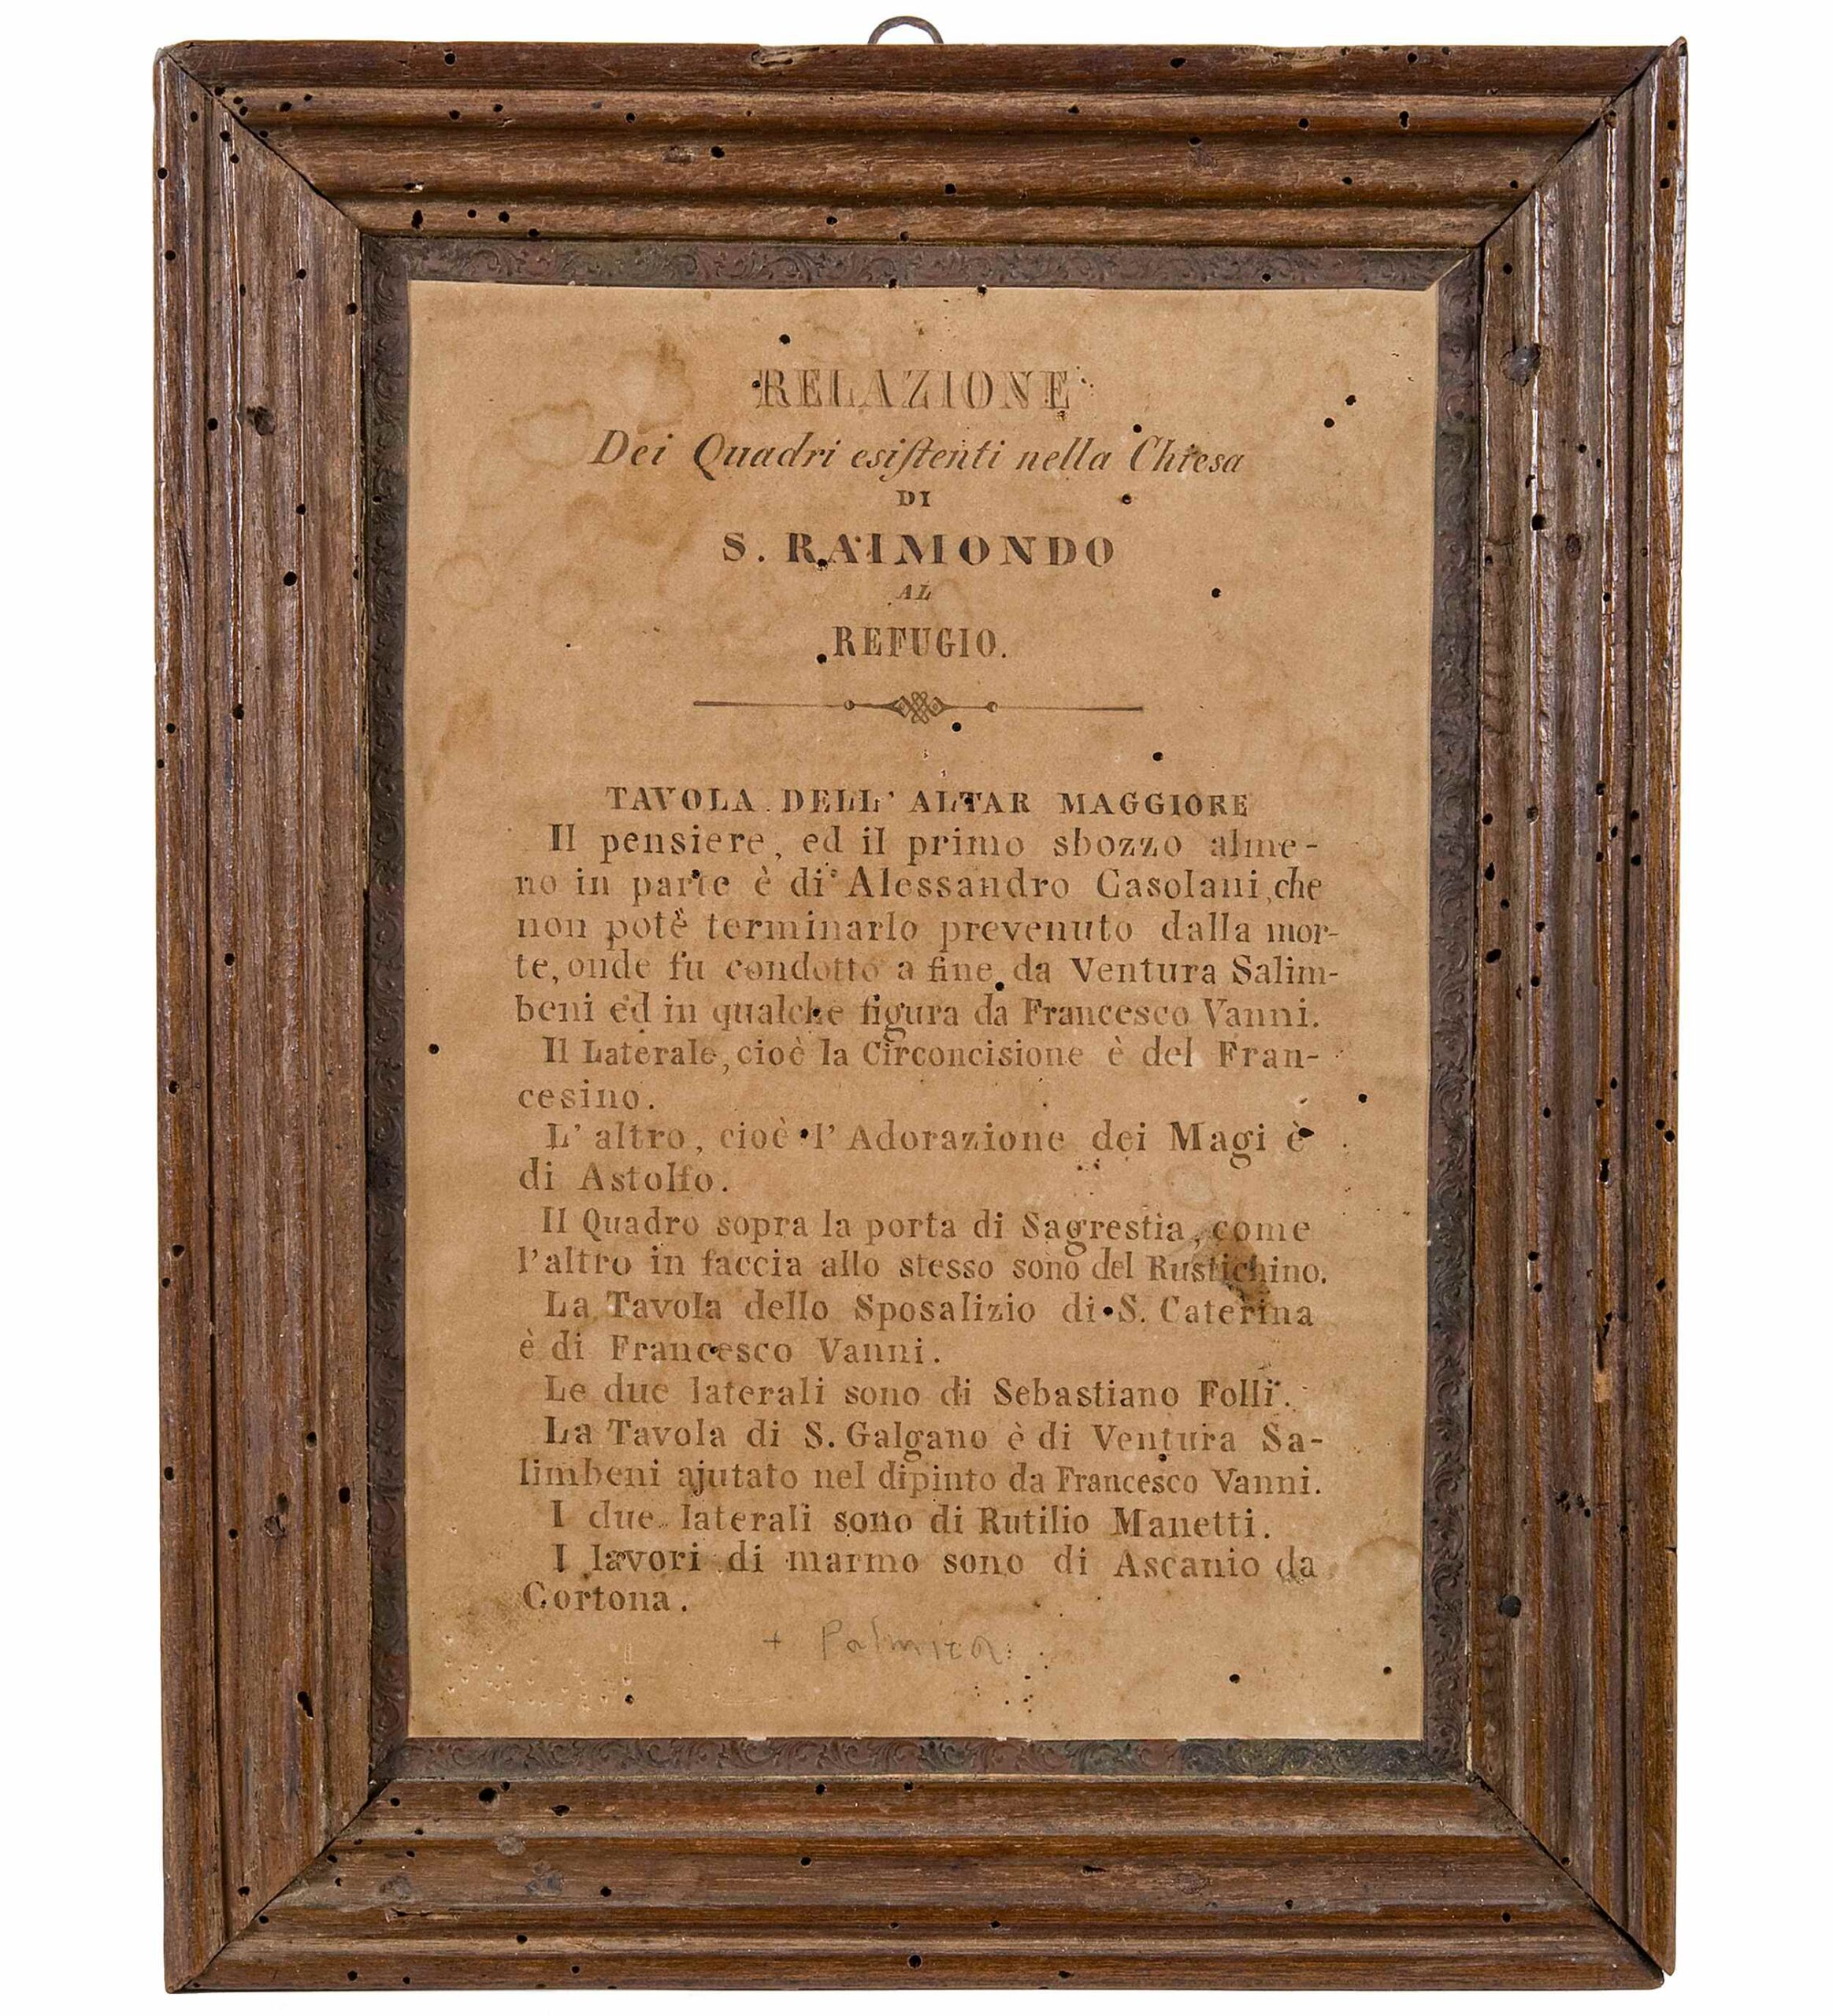 RELAZIONE
Dei Quadri esiſtenti nella Chiesa
DI
S. RAIMONDO
AL
REFUGIO.
TAVOLA DELL' ALTAR MAGGIORE
Il pensiere, ed il primo sbozzo alme-
no in parte è di Alessandro Casolani, che
non potè terminarlo prevenuto dalla mor-
te, onde fu condotto a fine da Ventura Salim-
beni ed in qualche figura da Francesco Vanni.
Il Laterale, cioè la Circoncisione è del Fran-
cesino.
L' altro, cioè l' Adorazione dei Magi è
di Astolfo.
Il Quadro sopra la porta di Sagrestia, come
l'altro in faccia allo stesso sono del Rustichino.
La Tavola dello Sposalizio di S. Caterina
è di Francesco Vanni.
Le due laterali sono di Sebastiano Folli.
La Tavola di S. Galgano è di Ventura Sa-
limbeni ajutato nel dipinto da Francesco Vanni.
I due laterali sono di Rutilio Manetti.
I lavori di marmo sono di Ascanio da
Cortona.
+ Palmira